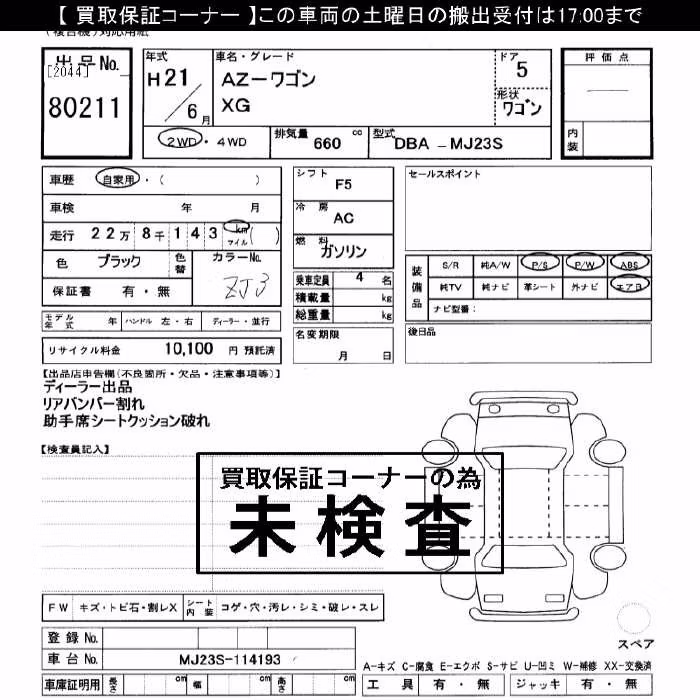 【 買取保証コーナー 】この車両の土曜日の搬出受付は17:00まで
(複合機)対応用紙
出品No.
[2044]
80211
年式
H21/6月
車名・グレード
AZーワゴン
XG
ドア
5
形状
ワゴン
評価点
内装
2WD・4WD
排気量 660 cc
型式 DBA－MJ23S
車歴 自家用・( )
車検 年 月
走行 22万8千143 km マイル ( )
色 ブラック
色替
カラーNo.
ZJ3
保証書 有・無
モデル年式 年
ハンドル 左・右
ディーラー・並行
リサイクル料金 10,100 円 預託済
シフト
F5
冷房
AC
燃料
ガソリン
乗車定員 4 名
積載量 kg
総重量 kg
名変期限
月 日
セールスポイント
装備品
S/R 純A/W P/S P/W ABS
純TV 純ナビ 革シート 外ナビ エアB
ナビ型番：
後日品
【出品店申告欄(不良箇所・欠品・注意事項等)】
ディーラー出品
リアバンパー割れ
助手席シートクッション破れ
【検査員記入】
買取保証コーナーの為
未検査
FW キズ・トビ石・割レX
シート内装 コゲ・穴・汚レ・シミ・破レ・スレ
登録No.
車台No. MJ23S-114193
車庫証明用 長さ cm 幅 cm 高さ cm
スペア
A-キズ C-腐食 E-エクボ S-サビ U-凹ミ W-補修 XX-交換済
工具 有・無 ジャッキ 有・無